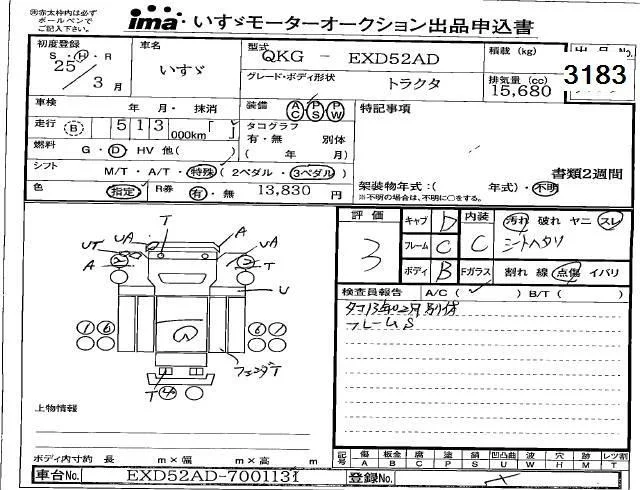 ㊟赤太枠内は必ず
ボールペンで
ご記入下さい。
ima いすゞモーターオークション出品申込書
初度登録 車名 型式 QKG - EXD52AD 積載(kg) 出品No.
S・H・R
25 いすゞ グレード・ボディ形状 排気量(cc) 3183
3月 トラクタ 15,680
車検 年 月・抹消 装備 AC PS PW 特記事項
走行 B 513 000km タコグラフ
有・無 別体
燃料 G・D・HV 他( ) ( 年 月)
シフト M/T・A/T・特殊(2ペダル・3ペダル) 書類2週間
色 指定 R券 有・無 13,830円 架装物年式:( 年式)・不明
※不明の場合は、不明に○をする。
評価 キャブ D 内装 汚れ 破れ ヤニ スレ
3 フレーム C C シートヘタリ
ボディ B Fガラス 割れ 線 点傷 イバリ
検査員報告 A/C( ✓ ) B/T( )
タコ13年02月別体
フレームS
T
UT UA A UA
A 2 2 T
U
1 6 6 1
フェンダT
T 4
上物情報
ボディ内寸約 長 m×幅 m×高 m
記号 傷A 板金B 腐C 塗P 錆S 凹凸曲U 波W 穴H 跡M レンズ割T
車台No. EXD52AD-7001131 登録No.